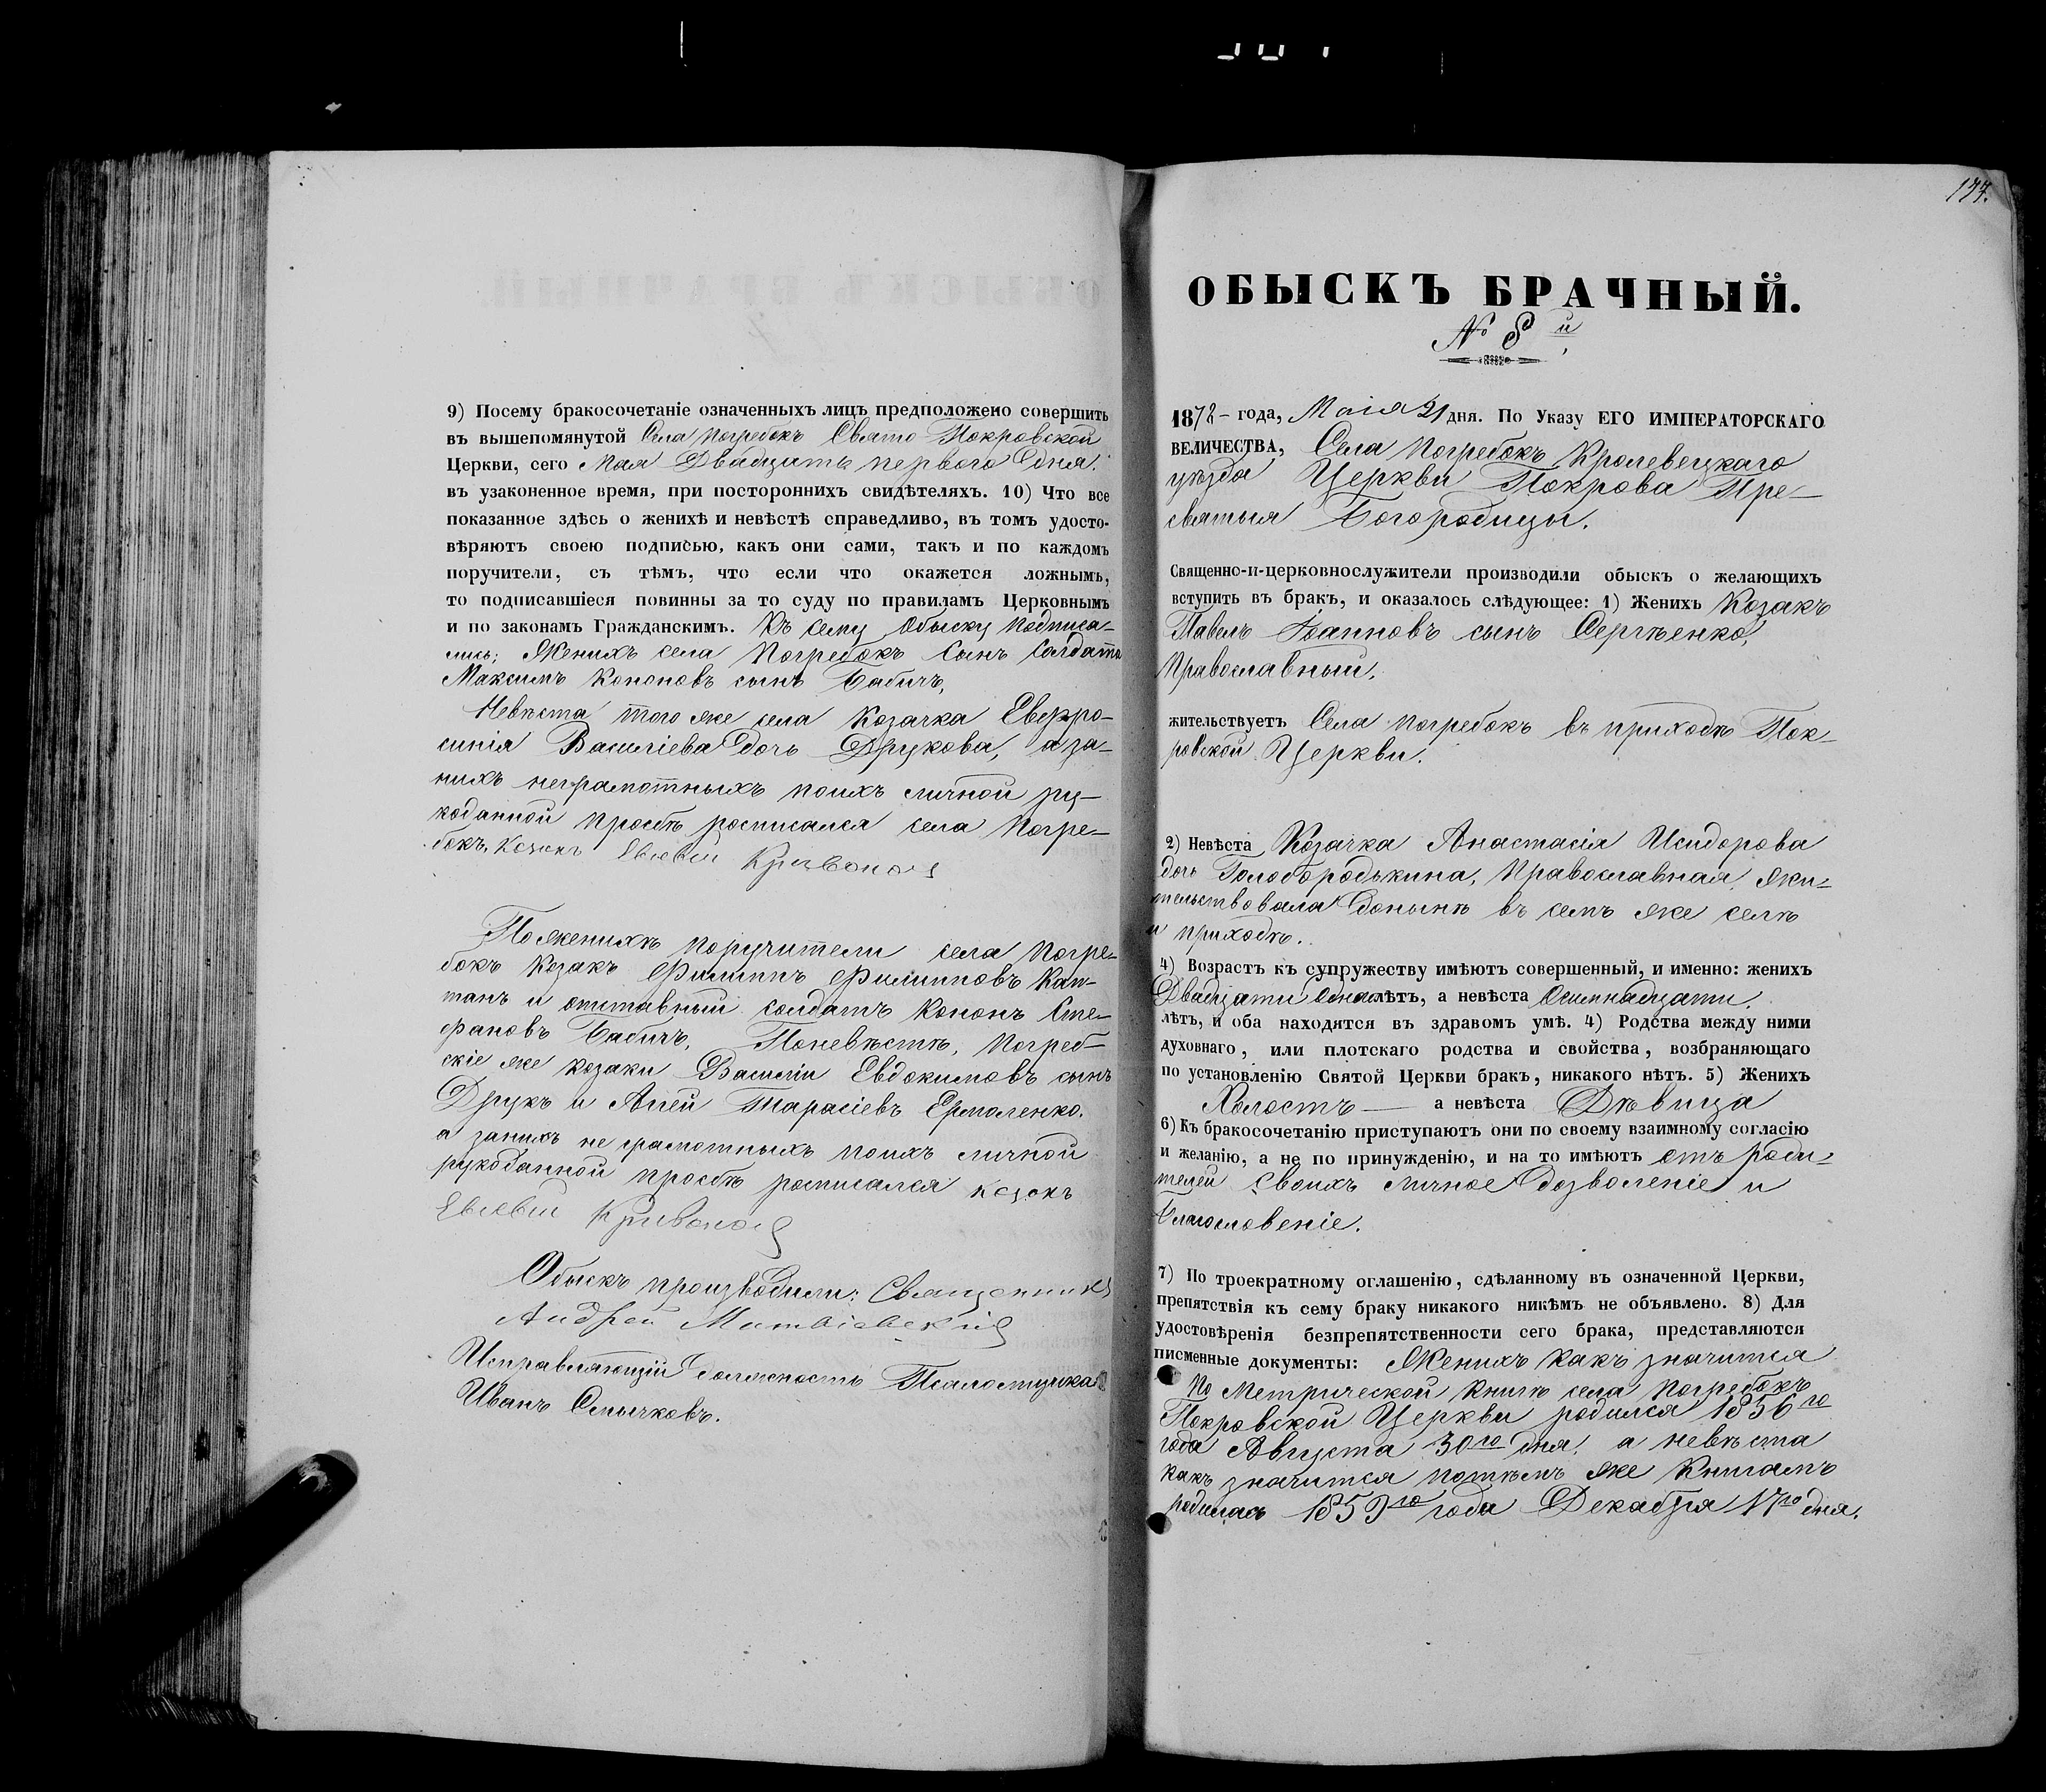 9) Посему бракосочетаніе означенныхъ лицъ предположено совершить
въ вышепомянутой Села Погребокъ Свято Покровской
Церкви, сего Мая Двадцать перваго дня.
въ узаконенное время, при постороннихъ свидѣтеляхъ. 10) Что все
показанное здѣсь о женихѣ и невѣстѣ справедливо, въ томъ удосто-
вѣряютъ своею подписью, какъ они сами, такъ и по каждомъ
поручители, съ тѣмъ, что если что окажется ложнымъ,
то подписавшіеся повинны за то суду по правиламъ Церковнымъ
и по законамъ Гражданскимъ. Къ сему Обыску подписа-
лись; Женихъ села Погребокъ Сынъ Солдата
Максимъ Кононовъ сынъ Бабичъ,
Невѣста того же села Козачка Евфро-
синія Василіева дочь Друкова, а за-
нихъ неграмотныхъ поихъ личной ру-
коданной прозбѣ росписался села Погре-
бокъ, Козакъ Евсевій Кривонос
Поженихѣ поручители села Погре-
бокъ Козакъ Филиппъ Филиповъ Кап-
танъ и отставный солдатъ Кононъ Сте-
фановъ Бабичъ, Поневѣстѣ, Погреб-
скіе же козаки Василій Евдокимовъ сынъ
Друкъ и Тарасіевъ Ермоленко.
а занихъ не грамотныхъ поихъ личной
рукоданной прозбѣ росписался козакъ
Евсевій Кривонос
Обыскъ производили: Священникъ
Андрей Матвіевскій
Исправляющій должность Псаломщика
Иванъ Смычковъ.
177.
ОБЫСКЪ БРАЧНЫЙ.
№ 8й
1878 года, Маія 21 дня. По Указу ЕГО ИМПЕРАТОРСКАГО
ВЕЛИЧЕСТВА, Села Погребокъ Кролевецкаго
уѣзда Церкви Покрова Пре-
святыя Богородицы.
Священно-и-церковнослужители производили обыскъ о желающихъ
вступить въ бракъ, и оказалось слѣдующее: 1) Женихъ Козакъ
Павелъ Іоанновъ сынъ Сергѣенко,
Православный,
жительствуетъ Села Погребокъ въ приходѣ Пок-
ровской Церкви.
2) Невѣста Козачка Анастасія Исидорова
дочь Голобородькина, Православная, жи-
тельствовала донынѣ въ семъ же селѣ
и приходѣ.
4) Возрастъ къ супружеству имѣютъ совершенный, и именно: женихъ
Двадцати одна лѣтъ, а невѣста Осимнадцати.
лѣтъ, и оба находятся въ здравомъ умѣ. 4) Родства между ними
духовнаго, или плотскаго родства и свойства, возбраняющаго
по установленію Святой Церкви бракъ, никакого нѣтъ. 5) Женихъ
Холостъ — а невѣста Дѣвица
6) Къ бракосочетанію приступаютъ они по своему взаимному согласію
и желанію, а не по принужденію, и на то имѣютъ отъ роди-
телей своихъ личное дозволеніе и
благословеніе.
7) По троекратному оглашенію, сдѣланному въ означенной Церкви,
препятствія къ сему браку никакого никѣмъ не объявлено. 8) Для
удостовѣренія безпрепятственности сего брака, представляются
писменные документы: Женихъ какъ значится
По Метрической Книгѣ села Погребокъ
Покровской Церкви родился 1856го
года Августа 30го дня. а невѣста
какъ значится потѣмъ же Книгамъ
родилась 1859го года Декабря 17го дня.